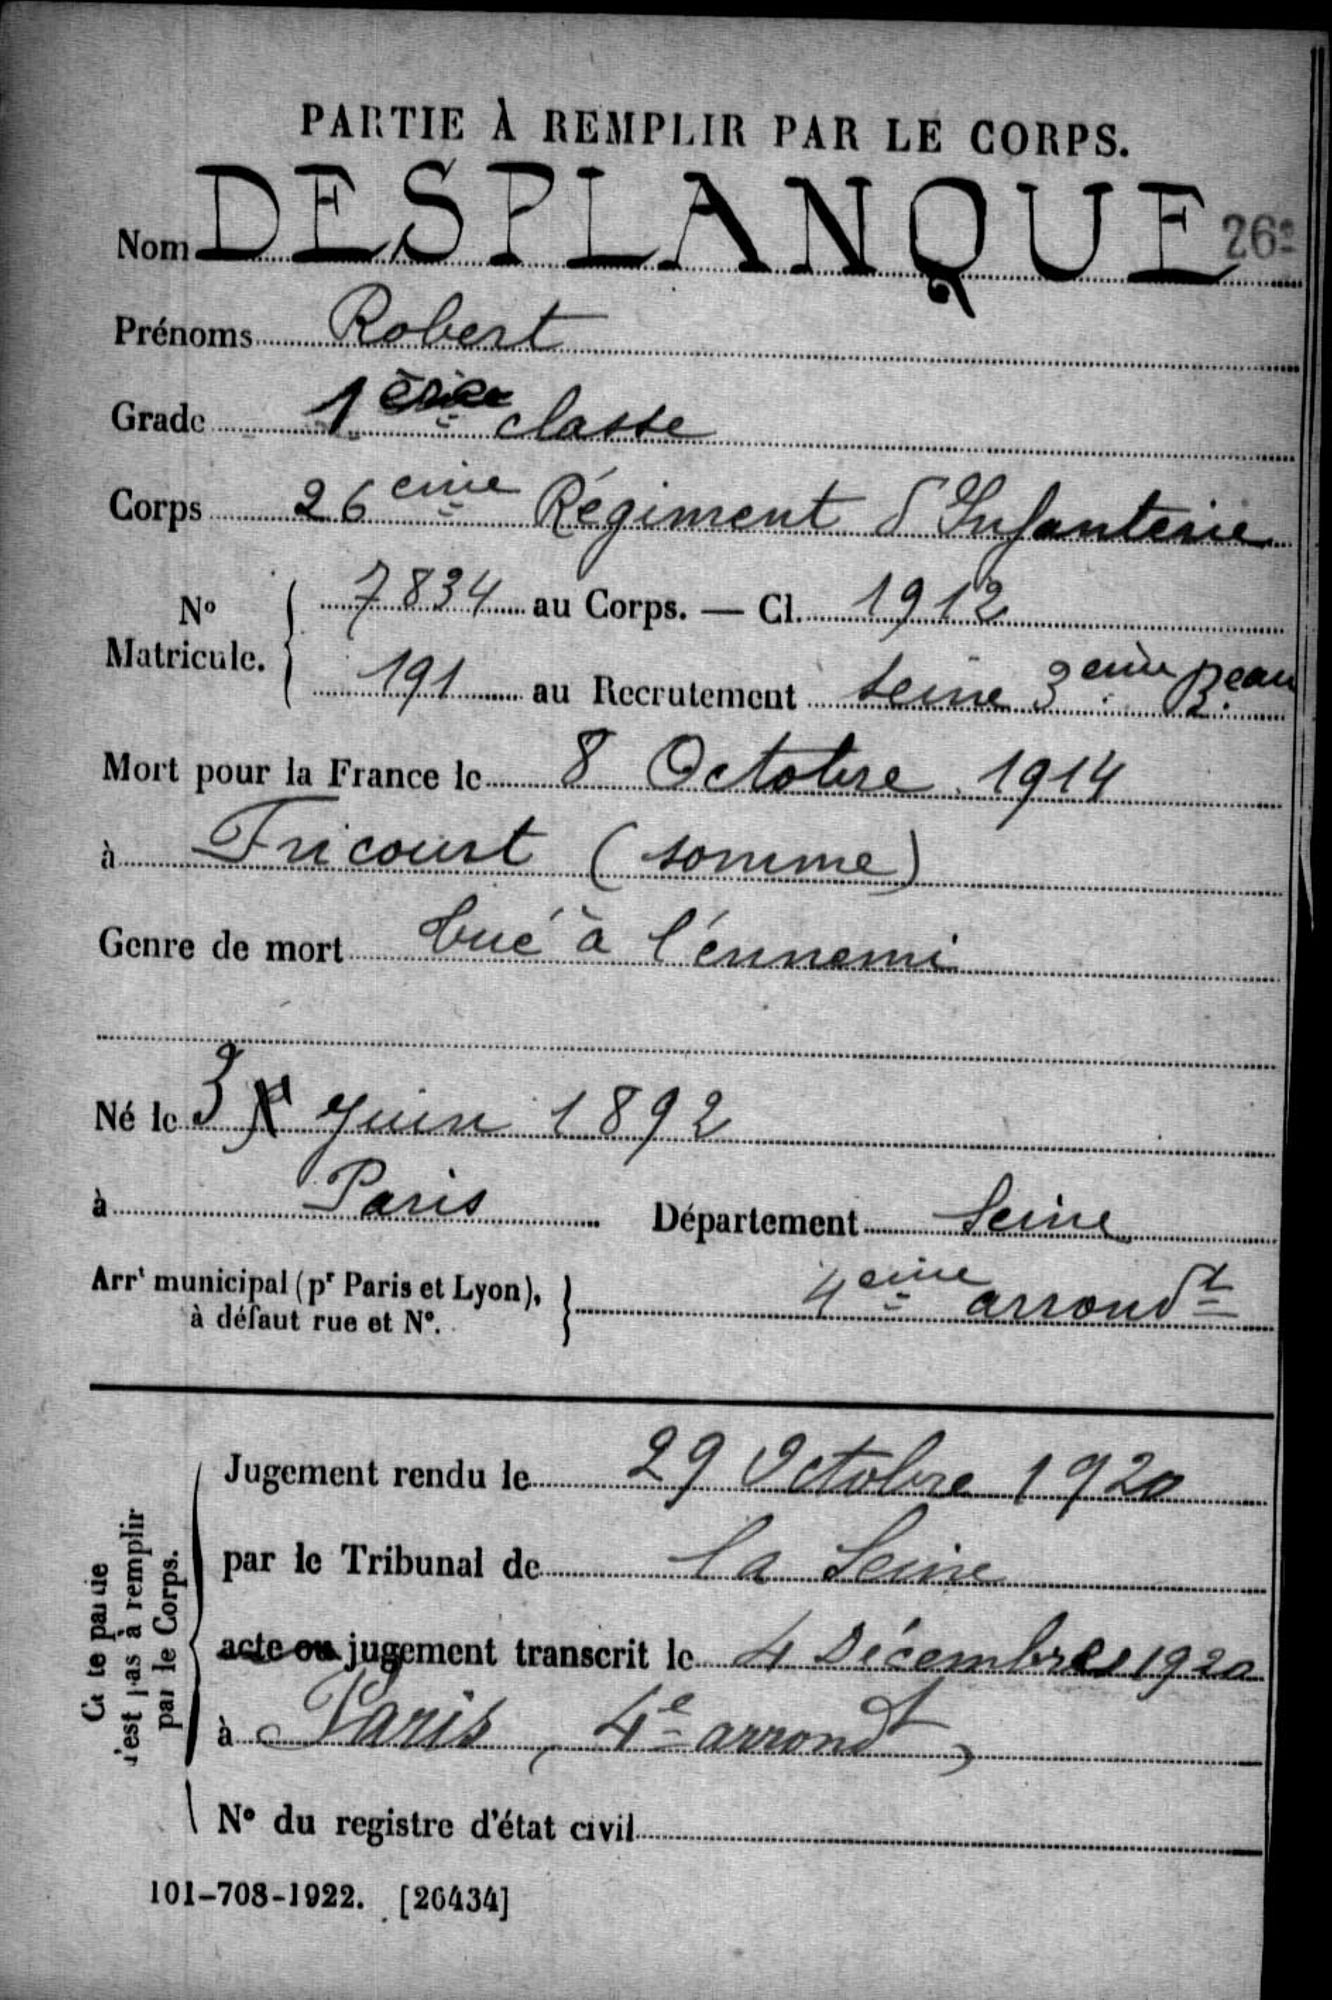 PARTIE À REMPLIR PAR LE CORPS.
Nom DESPLANQUE
Prénoms Robert
Grade 1 classe
Corps 26eme Régiment d'Infanterie
No Matricule. 7834 au Corps. — Cl. 1912
191 au Recrutement Seine 3eme Beau
Mort pour la France le 8 Octobre 1914
à Fricourt (Somme)
Genre de mort tué à l'ennemi
Né le 3 Juin 1892
à Paris Département Seine
Arrt municipal (pr Paris et Lyon), à défaut rue et No. 4eme arrondt
Jugement rendu le 29 Octobre 1920
par le Tribunal de la Seine
acte ou jugement transcrit le 4 Décembre 1920
à Paris, 4e arrondt
No du registre d'état civil
n'est pas à remplir
par le Corps.
101-708-1922. [26434]